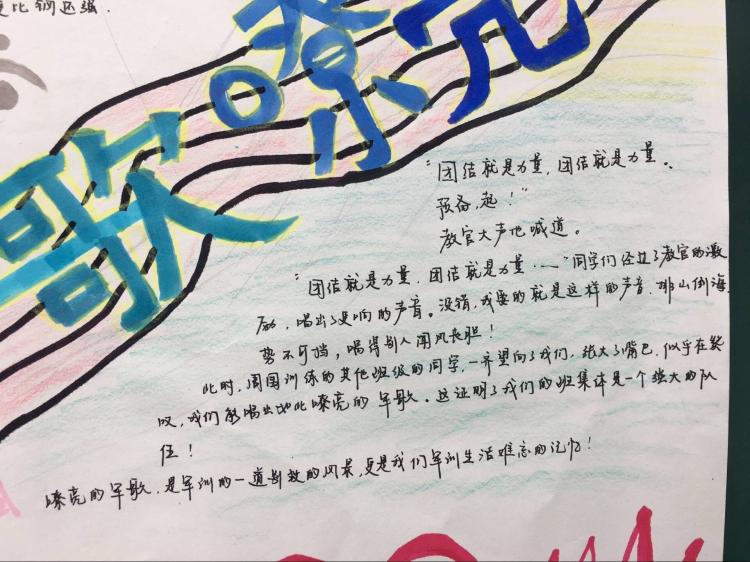 更比钢还强.
歌嘹亮
“团结就是力量，团结就是力量。
预备，起！”
教官大声地喊道。
“团结就是力量，团结就是力量……”同学们经过了教官的激
励，唱出了更响的声音。没错，我要的就是这样的声音，排山倒海，
势不可挡，唱得别人闻风丧胆！
此时，周围训练的其他班级的同学，一齐望向了我们，张大了嘴巴，似乎在
叹，我们能唱出如此嘹亮的军歌。这证明了我们的班集体是一个强大的队
伍！
嘹亮的军歌，是军训的一道别致的风景，更是我们军训生活难忘的记忆！